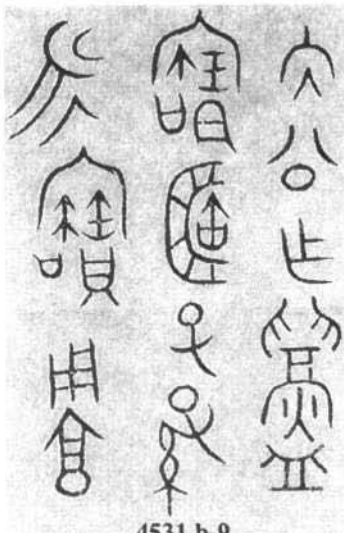 内公乍鑄
寶簠子孫
永寶用享
4531 b 9